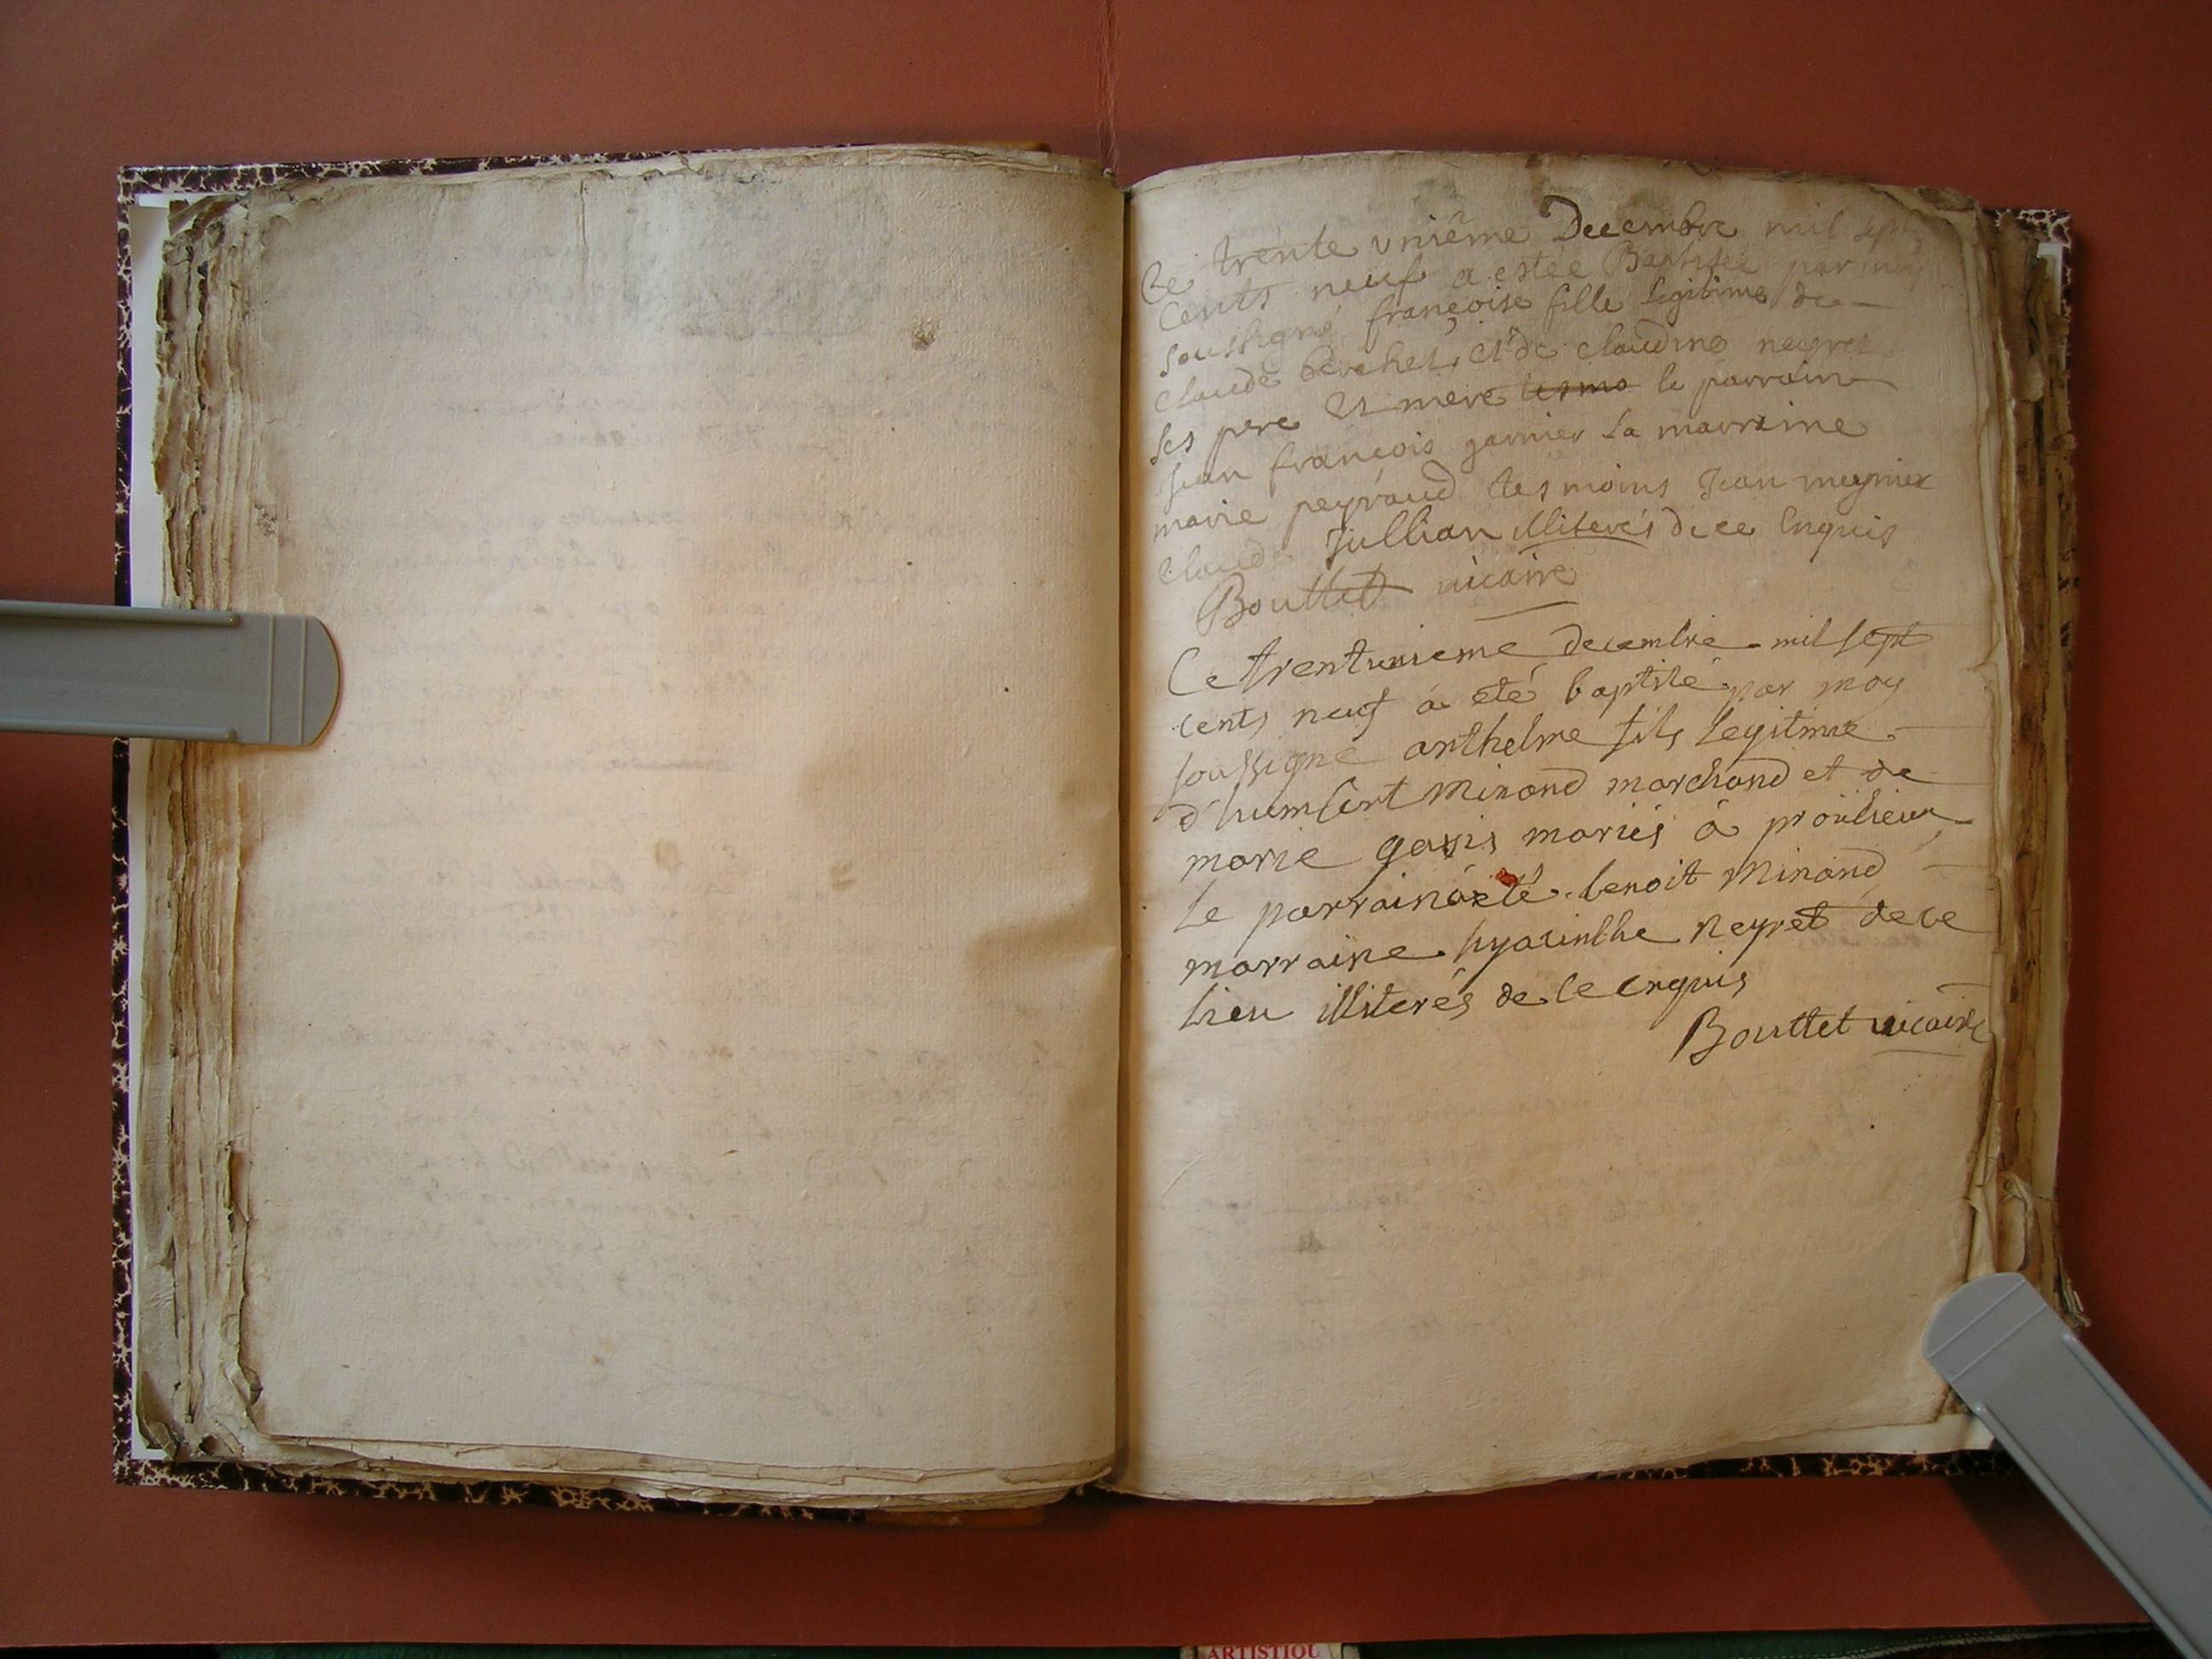 Ce trente unième Decembre mil sept
Cents neuf a estée Baptisée par moy
soussigné françoise fille legitime de
claude berchet et de claudine neyret
ses pere et mere tesmo le parrain
Jean françois garnier la marraine
marie peyraud tesmoins Jean meynier
claude Jullian illiterés de ce Enquis
Bouttet vicaire
Ce trentunieme decembre mil sept
cents neuf à eté baptisé par moy
soussigné anthelme fils Legitime
d'humbert Minand marchand et de
marie gaxis mariés à proulieux
Le parrain à eté benoit Minand
marraine hyacinthe Neyret de ce
lieu illiterés de ce enquis
Bouttet vicaire
ARTISTIQU